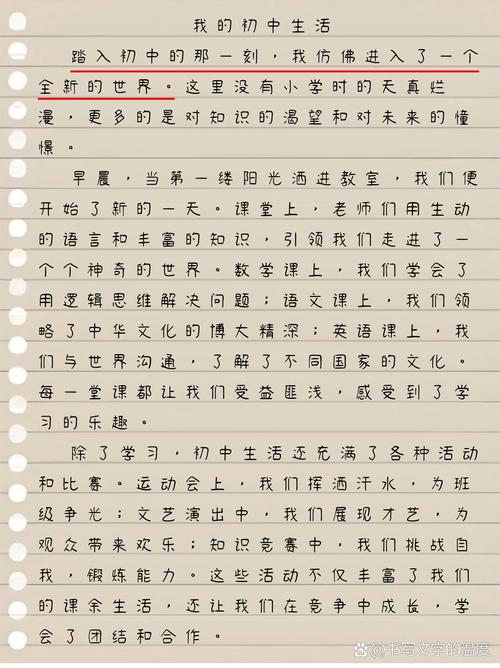 我的初中生活
踏入初中的那一刻，我仿佛进入了一个
全新的世界。这里没有小学时的天真烂
漫，更多的是对知识的渴望和对未来的憧
憬。
早晨，当第一缕阳光洒进教室，我们便
开始了新的一天。课堂上，老师们用生动
的语言和丰富的知识，引领我们走进了一
个个神奇的世界。数学课上，我们学会了
用逻辑思维解决问题；语文课上，我们领
略了中华文化的博大精深；英语课上，我
们与世界沟通，了解了不同国家的文化。
每一堂课都让我们受益匪浅，感受到了学
习的乐趣。
除了学习，初中生活还充满了各种活动
和比赛。运动会上，我们挥洒汗水，为班
级争光；文艺演出中，我们展现才艺，为
观众带来欢乐；知识竞赛中，我们挑战自
我，锻炼能力。这些活动不仅丰富了我们
的课余生活，还让我们在竞争中成长，学
会了团结和合作。
书写文字的温度